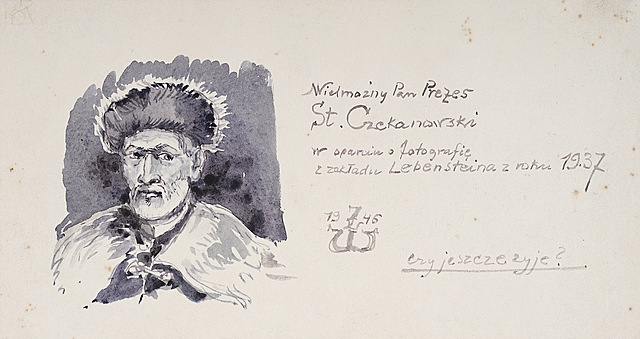 Wielmożny Pan Prezes
St. Czekanowski
w oparciu o fotografię
z zakładu Lebensteina z roku 1937
19 45
czy jeszcze żyje?